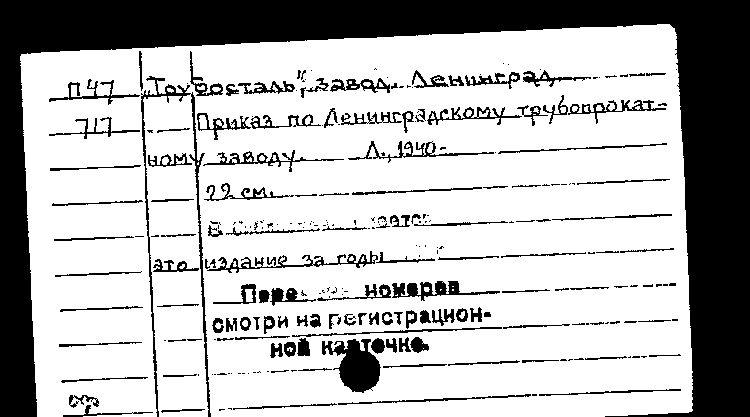 П47 „Трубосталь", завод. Ленинград
717 Приказ по Ленинградскому трубопрокат-
ному заводу. Л., 1940-
22 см.
В
это издание за годы
номеров
смотри на регистрацион-
ной карточке.